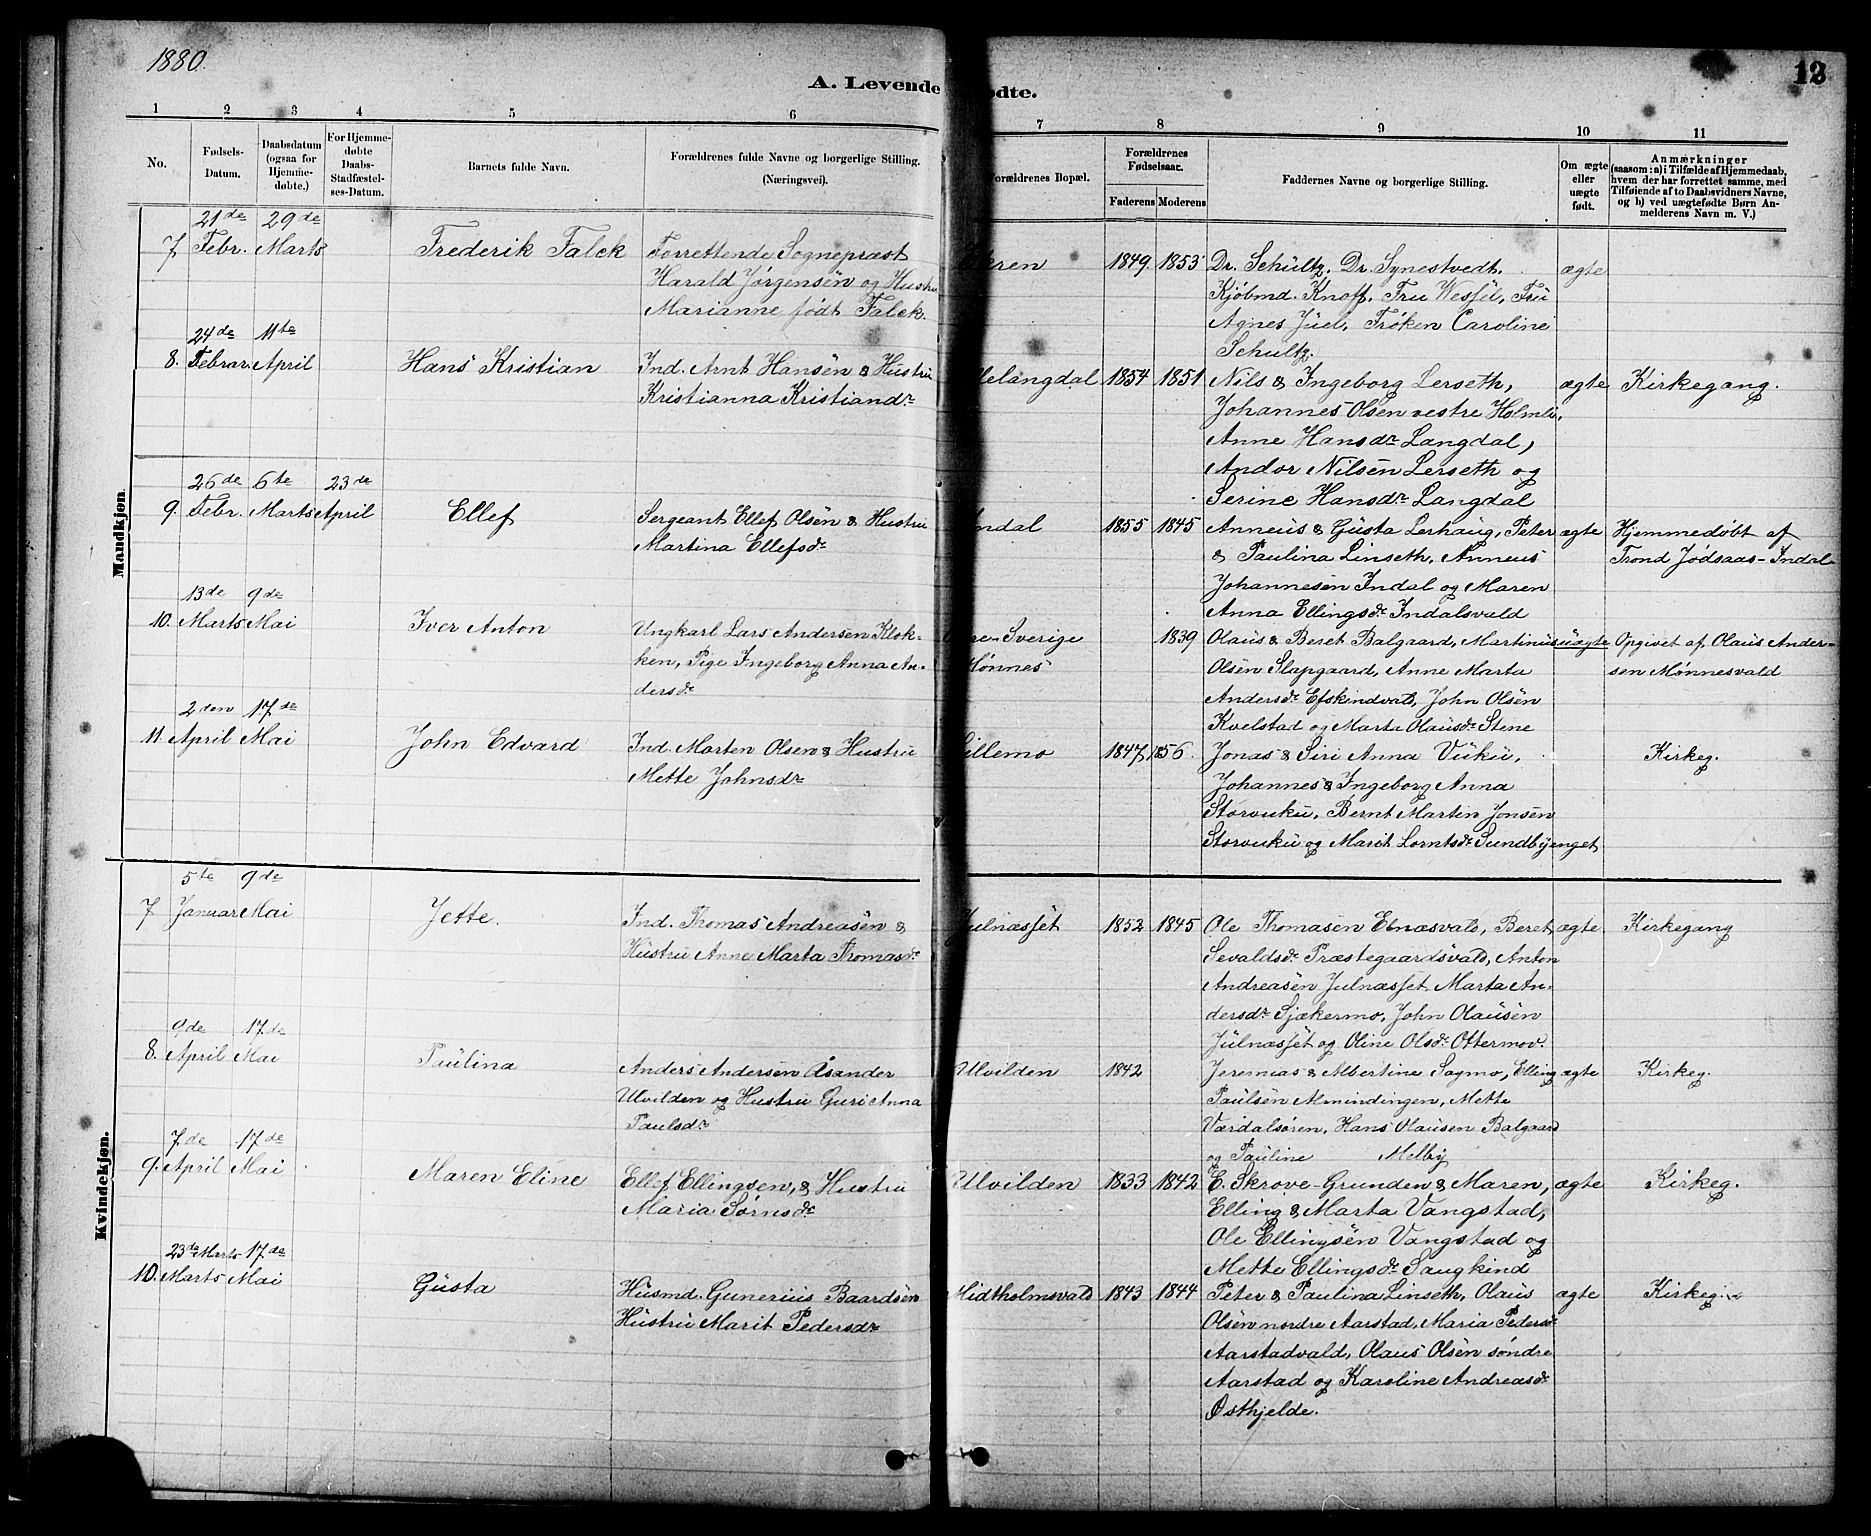 1880.
12
A. Levende fødte.
1 2 3 4 5 6 7 8 9 10 11
No.
Fødsels-
Datum.
Daabsdatum
(ogsaa for
Hjemme-
døbte.)
For Hjemme-
døbte
Daabs-
Stadfæstel-
ses-Datum.
Barnets fulde Navn.
Forældrenes fulde Navne og borgerlige Stilling.
(Næringsvei).
Forældrenes Bopæl.
Forældrenes
Fødselsaar.
Faderens Moderens
Faddernes Navne og borgerlige Stilling.
Om ægte
eller
uægte
født.
Anmærkninger
(saasom: a) i Tilfælde af Hjemmedaab,
hvem der har forrettet samme, med
Tilføiende af to Daabsvidners Navne,
og b) ved uægtefødte Børn An-
melderens Navn m. V.)
Mandkjøn.
21de 29de
7. Febr. Marts Frederik Falck Forrettende Sognepræst
Harald Jørgensen og Hustru
Marianne født Falck.
1849 1853 Dr. Schultz, Dr. Synestvedt, ægte
Kjøbmd. Knoff, Fru Wessel, Fru
Agnes Juel, Frøken Caroline
Schultz.
24de 11te
8. Februar. April Hans Kristian Ind. Arnt Hansen & Hustru
Kristianna Kristiandr
Lillelangdal 1854 1851 Nils & Ingeborg Lerseth, ægte Kirkegang.
Johannes Olsen vestre Holmli,
Anne Hansdr Langdal,
Andor Nilsen Lerseth og
Serine Hansdr Langdal
26de 6te 23de
9. Febr. Marts April Ellef Sergeant Ellef Olsen & Hustru
Martina Ellefsdr
Indal 1855 1845 Anneus & Gusta Lerhaug, Peter ægte Hjemmedøbt af
& Paulina Linseth, Anneus Trond Jødsaas-Indal
Johannesen Indal og Maren
Anna Ellingsdr Indalsvald
13de 9de
10. Marts Mai Iver Anton Ungkarl Lars Andersen Klok-
ken, Pige Ingeborg Anna An-
dersdr
Aare-Sverige 1839 Olaus & Beret Balgaard, Martinus uægte Opgivet af Olaus Ander-
Mønnes Olsen Slapgaard, Anne Marta sen Mønnesvald
Andersdr Efskindvald, John Olsen
Kvelstad og Marta Olausdr Stene
2den 17de
11. April Mai John Edvard Ind. Marten Olsen & Hustru
Mette Johnsdr
Lillemo 1847, 1856. Jonas & Siri Anna Vuku, Kirkeg.
Johannes & Ingeborg Anna
Storvuku, Bernt Marten Jonsen
Storvuku og Marit Lorntsdr Sundbyenget
Kvindekjøn.
5te 9de
7 Januar Mai Jette. Ind. Thomas Andreasen &
Hustru Anne Marta Thomasdr
Julnæsset 1852 1845 Ole Thomasen Ebnæsvald, Beret ægte Kirkegang
Sevaldsdr Præstegaardsvald, Anton
Andreasen Julnæsset, Marta An-
dersdr Sjækermo, John Olausen
Julnæsset og Oline Olsdr Ottermov.
9de 17de
8. April Mai Paulina Anders Andersen Åsander
Ulvilden og Hustru Guri Anna
Paulsdr
Ulvilden 1842 Jeremias & Albertine Sagmo, Elling ægte Kirkeg.
Paulsen Almindingen, Mette
Værdalsøren, Hans Olausen Balgaard
og Pauline Melby
7de 17de
9. April Mai Maren Eline Ellef Ellingsen, & Hustru
Maria Sørnsdr
Ulvilden 1833 1842 E. Skrove-Grunden & Maren, ægte Kirkeg.
Elling & Marta Vangstad,
Ole Ellingsen Vangstad og
Mette Ellingsdr Saugkind
23de Marts 17de
10. Marts Mai Gusta Husmd. Gunerius Baardsen
Hustru Marit Pedersdr
Midtholmsvald 1843 1844 Peter & Paulina Linseth, Olaus ægte Kirkeg.
Olsen nordre Aarstad, Maria Pedersdr
Aarstadvald, Olaus Olsen søndre
Aarstad og Karoline Andreasdr
Østhjelde.